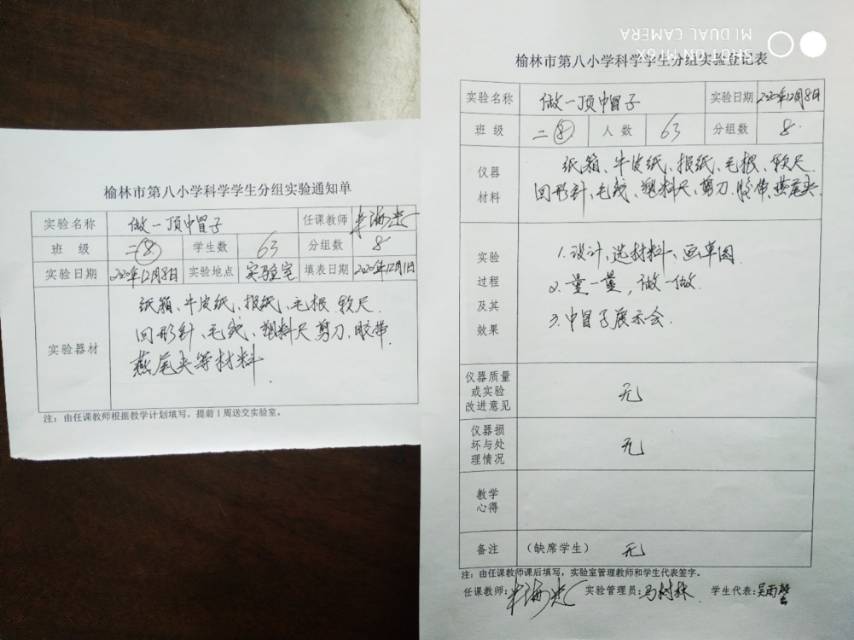 榆林市第八小学科学学生分组实验通知单
实验名称 做一顶帽子 任课教师
班 级 二⑧ 学生数 63 分组数 8
实验日期 2020年12月8日 实验地点 实验室 填表日期 2020年12月1日
实验器材
纸箱、牛皮纸、报纸、毛根、软尺
回形针、毛线、塑料尺 剪刀、胶带、
燕尾夹等材料
注：由任课教师根据教学计划填写，提前1周送交实验室。
SHOT ON MI 6X
MI DUAL CAMERA
榆林市第八小学科学学生分组实验登记表
实验名称 做一顶帽子 实验日期 2020年12月8日
班 级 二⑧ 人 数 63 分组数 8
仪器
材料
纸箱、牛皮纸、报纸、毛根、软尺
回形针、毛线、塑料尺、剪刀、胶带、燕尾夹
实验
过程
及其
效果
1.设计、选材料、画草图
2.量一量，做一做
3.帽子展示会.
仪器质量
或实验
改进意见
无
仪器损
坏与处
理情况
无
教学
心得
备注 (缺席学生) 无
注：由任课教师课后填写，实验室管理教师和学生代表签字。
任课教师: 实验管理员:马树林 学生代表:吴雨馨